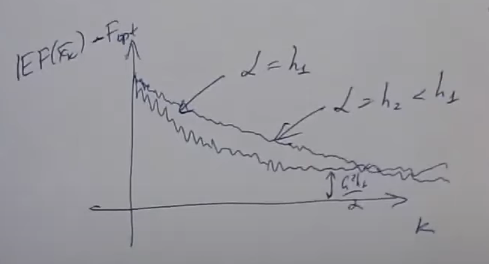 𝔼F(x̄ₖ) - Fopt
α = h₁
α = h₂ < h₁
G²h₁
2
k